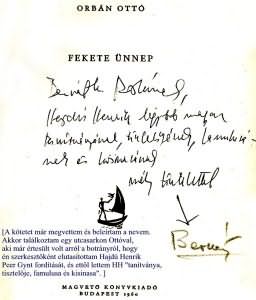 ORBÁN OTTÓ
FEKETE ÜNNEP
Hajdú Henrik
tanítványának, tisztelőjének, famulusá-
nak és kisinasának
mély tisztelettel
[A kötetet már megvettem és beleírtam a nevem.
Akkor találkoztam egy utcasarkon Ottóval,
aki már értesült volt arról a botrányról, hogy
én szerkesztőként elutasítottam Hajdú Henrik
Peer Gynt fordítását, és ettől lettem HH "tanítványa,
tisztelője, famulusa és kisinasa". ]
MAGVETŐ KÖNYVKIADÓ
BUDAPEST 1960